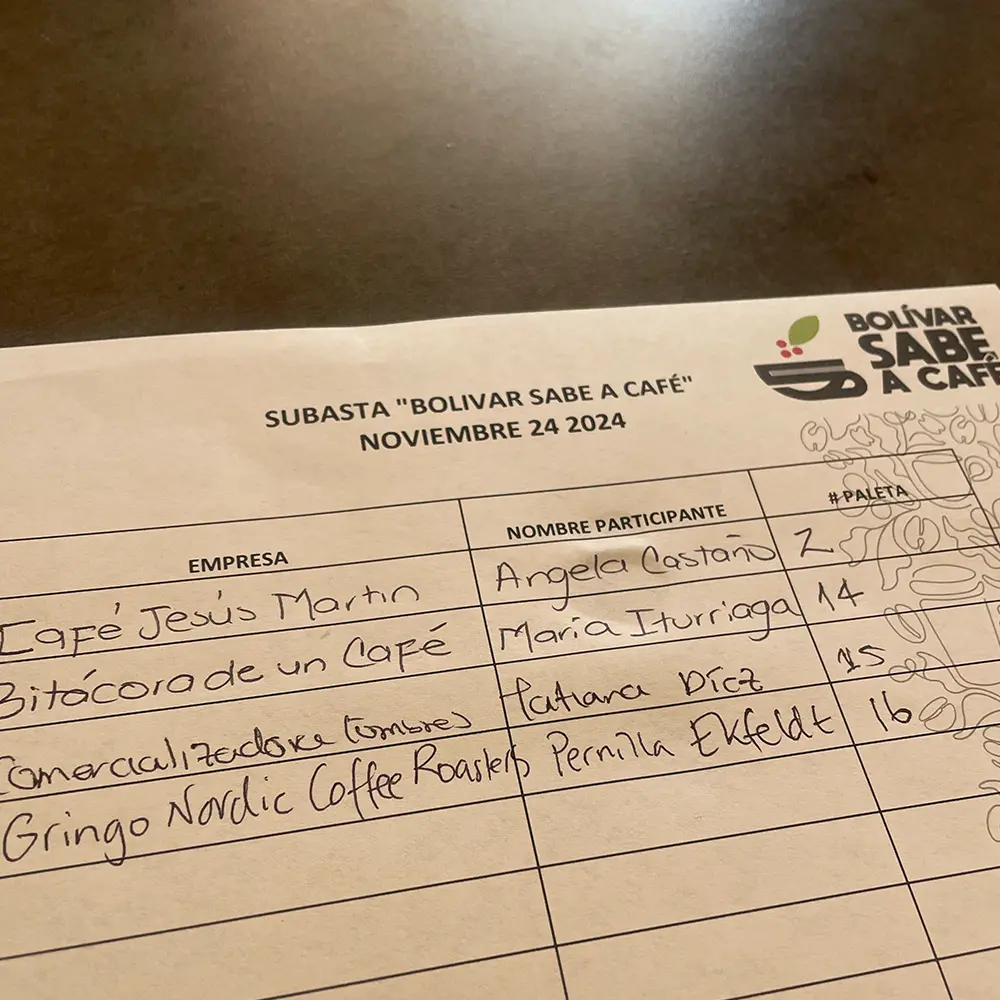 BOLÍVAR
SABE
A CAFÉ
SUBASTA "BOLIVAR SABE A CAFÉ"
NOVIEMBRE 24 2024
EMPRESA NOMBRE PARTICIPANTE # PALETA
Café Jesús Martin Angela Castaño 2
Bitácora de un Café María Iturriaga 14
Comercializadora Tatiana Díez 15
Gringo Nordic Coffee Roasters Pernilla Ekfeldt 16